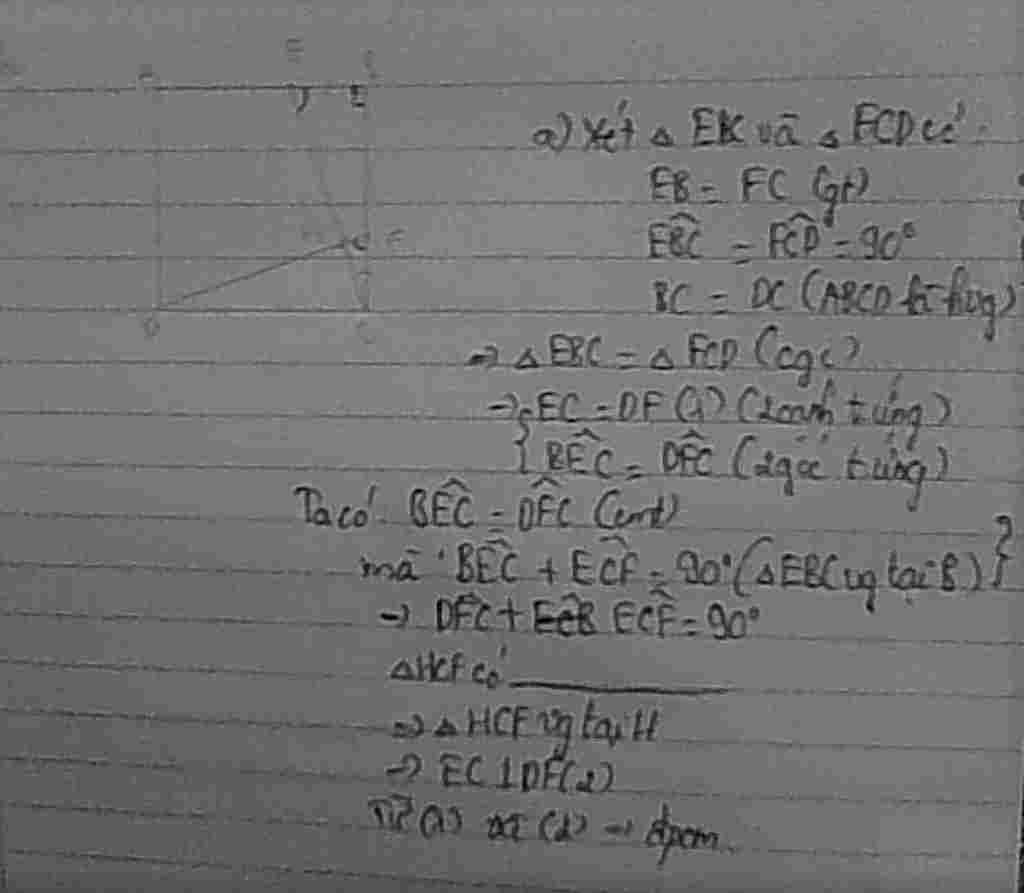 a) Xét △ EBC và △ FCD có
EB = FC (gt)
EBC = FCD = 90°
BC = DC (ABCD là hvg)
→ △ EBC = △ FCD (cgc)
→ { EC = DF (1) (2 cạnh t ứng)
BEC = DFC (2 góc t ứng)
Ta có BEC = DFC (cmt)
mà BEC + ECF = 90° (△EBC vg tại B) }
→ DFC + ECF = 90°
△HCF có
→ △ HCF vg tại H
→ EC ⊥ DF (2)
Từ (1) và (2) → đpcm
D C F